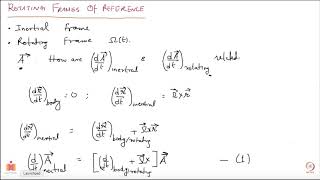 ROTATING FRAMES OF REFERENCE
• Inertial Frame
• Rotating Frame Ω(t).
A⃗ How are (dA⃗/dt)inertial & (dA⃗/dt)rotating related.
(dr⃗/dt)body = 0 ; (dr⃗/dt)inertial = Ω⃗×r⃗
(dr⃗/dt)inertial = (dr⃗/dt)body/rotating + Ω⃗×r⃗
(d/dt)inertial A⃗ = [(d/dt)body/rotating + Ω⃗×] A⃗ — (1)